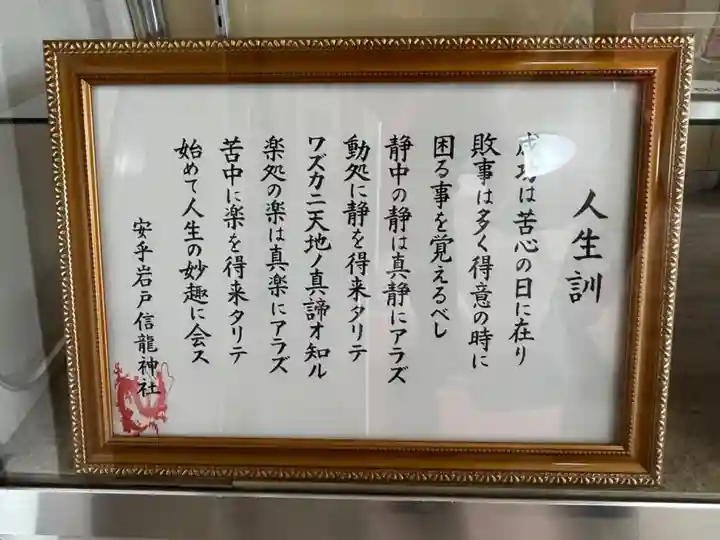 人生訓
成功は苦心の日に在り
敗事は多く得意の時に
困る事を覚えるべし
静中の静は真静にアラズ
動処に静を得来タリテ
ワズカニ天地ノ真諦オ知ル
楽処の楽は真楽にアラズ
苦中に楽を得来タリテ
始めて人生の妙趣に会ス
安乎岩戸信龍神社